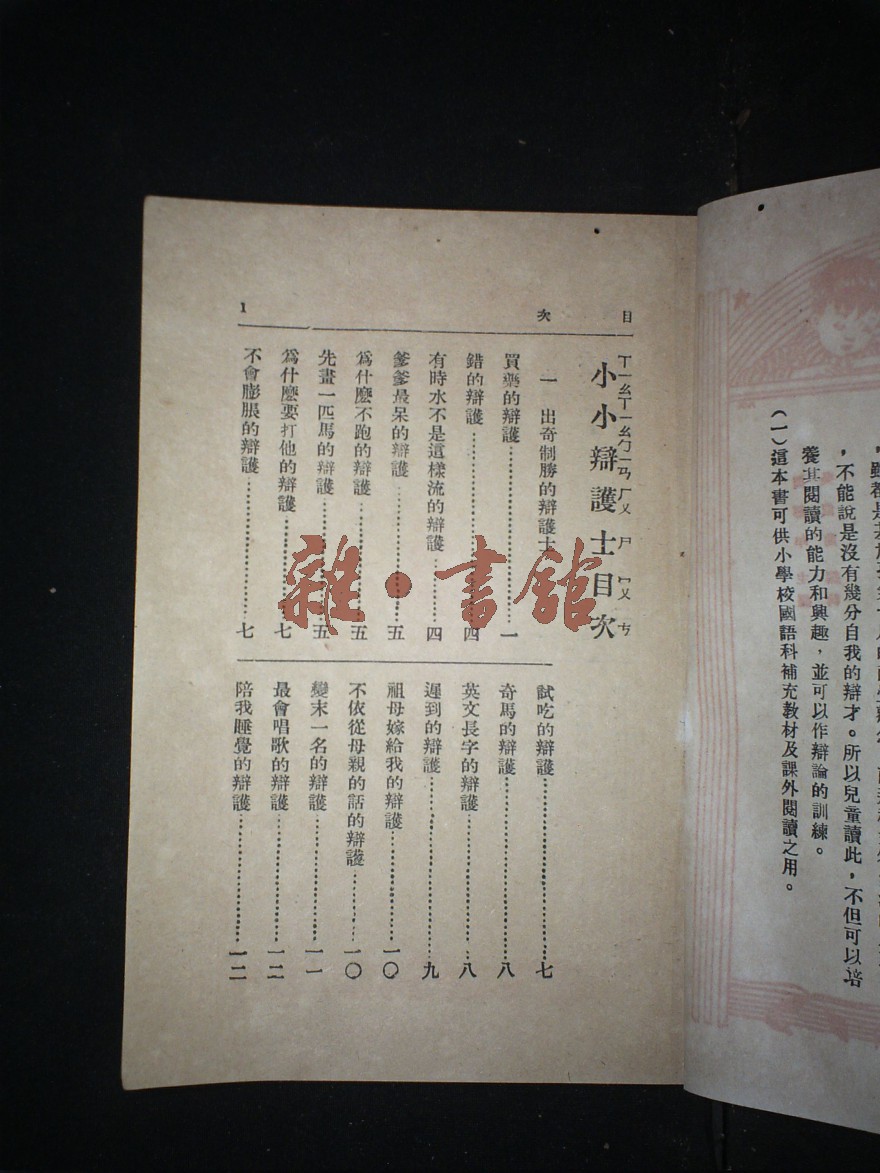 ，不能說是沒有幾分自我的辯才。所以兒童讀此，不但可以培
養其閱讀的能力和興趣，並可以作辯論的訓練。
（一）這本書可供小學校國語科補充教材及課外閱讀之用。
目 次 1
小小辯護士目次
ㄒㄧㄠ ㄒㄧㄠ ㄅㄧㄢ ㄏㄨ ㄕ ㄇㄨ ㄘ
一 出奇制勝的辯護士
買藥的辯護…………一
錯的辯護…………四
有時水不是這樣流的辯護…………四
爹爹最呆的辯護…………五
爲什麽不跑的辯護…………五
先畫一匹馬的辯護…………五
爲什麽要打他的辯護…………七
不會膨脹的辯護…………七
試吃的辯護…………七
奇馬的辯護…………八
英文長字的辯護…………八
遲到的辯護…………九
祖母嫁給我的辯護…………一〇
不依從母親的話的辯護…………一〇
變末一名的辯護…………一一
最會唱歌的辯護…………一二
陪我睡覺的辯護…………一二
雜·書館